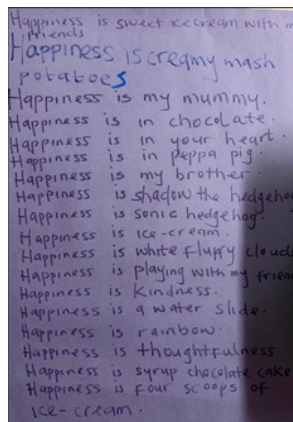 Happiness is sweet icecream with m
friends
Happiness is creamy mash
potatoes
Happiness is my mummy.
Happiness is in chocolate.
Happiness is in your heart.
Happiness is in peppa pig.
Happiness is my brother.
Happiness is shadow the hedgehog
Happiness is sonic hedgehog
Happiness is ice-cream.
Happiness is white fluffy clouds
Happiness is playing with my frien
Happiness is Kindness.
Happiness is a water slide.
Happiness is rainbow.
Happiness is thoughtfulness
Happiness is syrup chocolate cake
Happiness is four scoops of
ice-cream.